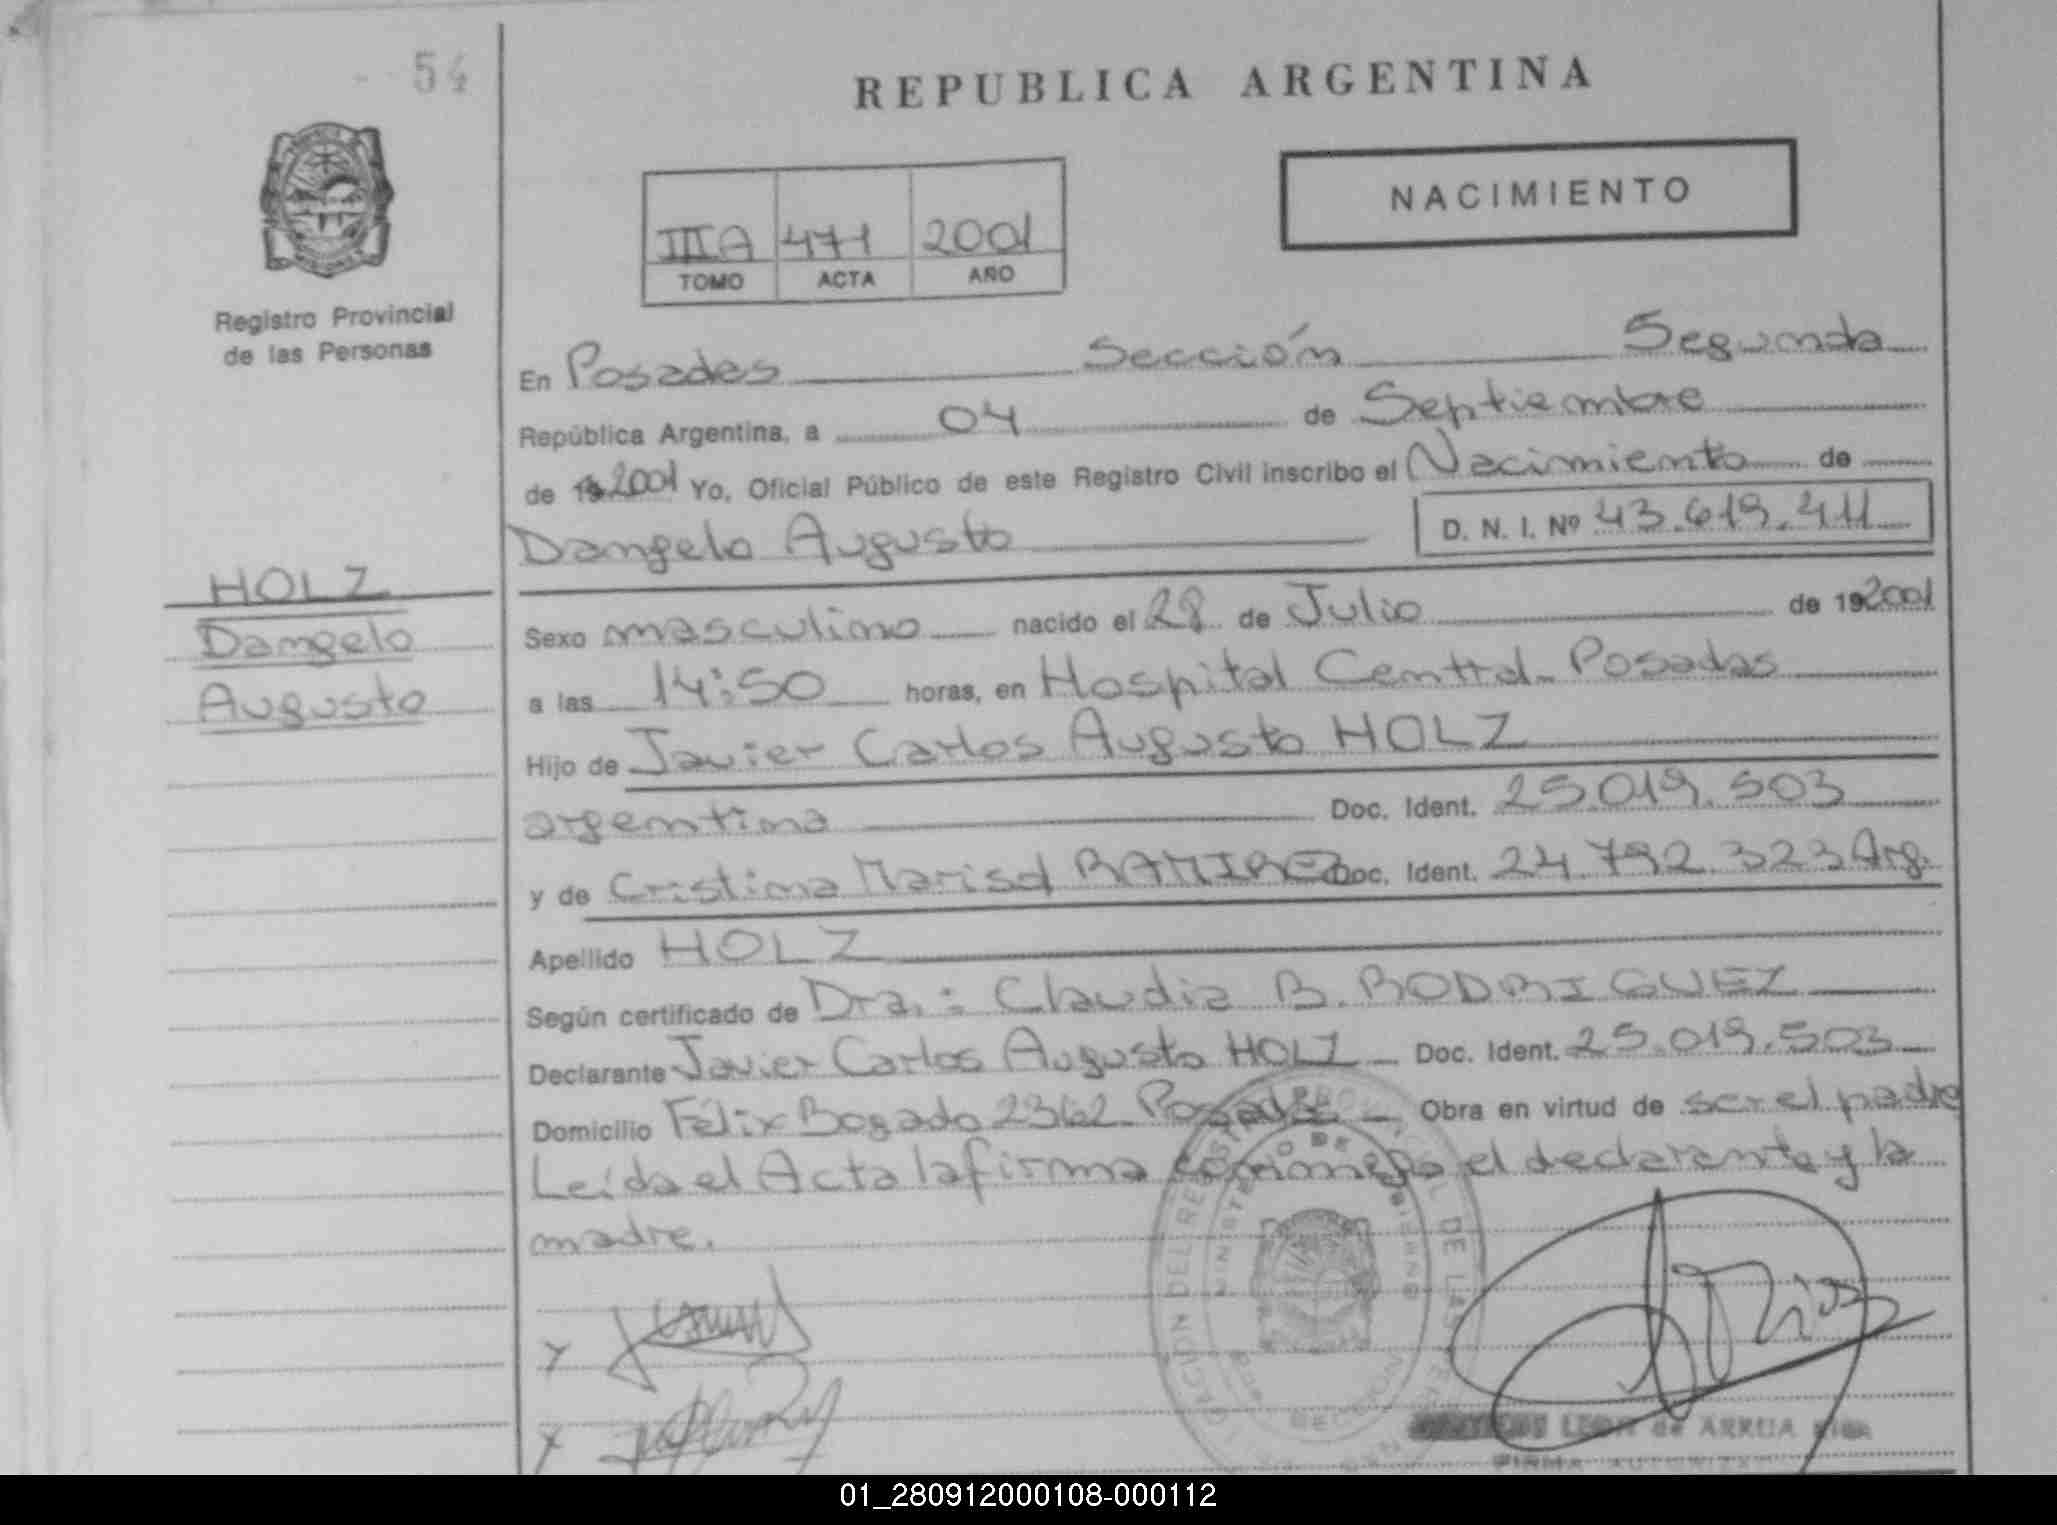 54
REPUBLICA ARGENTINA
NACIMIENTO
IIIA 471 2001
TOMO ACTA AÑO
Registro Provincial
de las Personas
En Posadas Sección Segunda
República Argentina, a 04 de Septiembre
de 19 2001 Yo, Oficial Público de este Registro Civil inscribo el Nacimiento de
Dangelo Augusto D. N. I. Nº 43.619.411
HOLZ
Dangelo
Augusto
Sexo masculino nacido el 28 de Julio de 19 2001
a las 14:50 horas, en Hospital Central - Posadas
Hijo de Javier Carlos Augusto HOLZ
argentina Doc. Ident. 25.019.503
y de Cristina Marisol RAMIREZ Doc. Ident. 24.792.323 Arg.
Apellido HOLZ
Según certificado de Dra.: Claudia B. RODRIGUEZ
Declarante Javier Carlos Augusto HOLZ Doc. Ident. 25.019.503
Domicilio Félix Bogado 2362 - Posadas Obra en virtud de ser el padre
Leída el Acta la firma conmigo el declarante y la
madre.
LEON de ARRUA
FIRMA
01_280912000108-000112